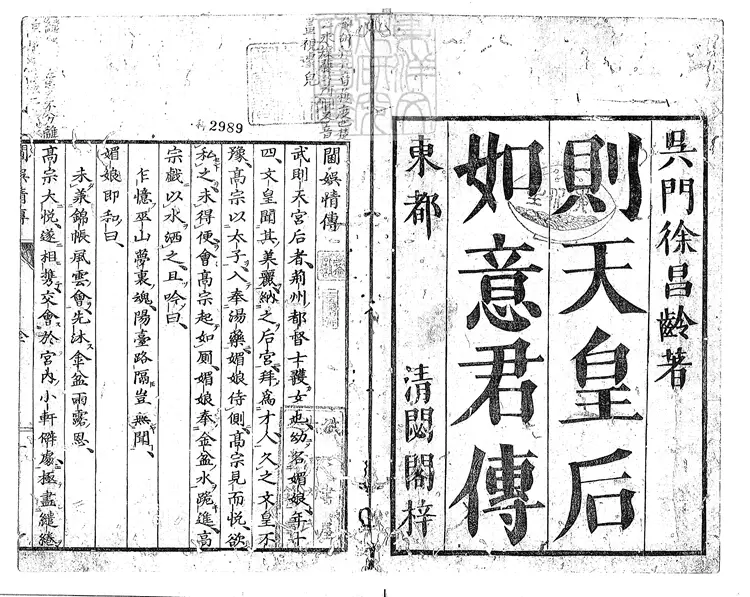 吳門徐昌齡著
則天皇后
如意君傳
東都
清閟閣梓
2989
閫娛情傳
武則天宮后者荊州都督士彠女也幼名媚娘年十
四文皇聞其美麗納之后宮拜為才人久之文皇不
豫高宗以太子入奉湯藥媚娘侍側高宗見而悅欲
私之未得便會高宗起如廁媚娘奉金盆水跪進高
宗戲以水洒之且吟曰
乍憶巫山夢裏魂陽臺路隔豈無聞
媚娘即和曰
未菜錦帳風雲會先沐金盆雨露恩
高宗大悅遂相携交會於宮內小軒僻處極盡繾綣